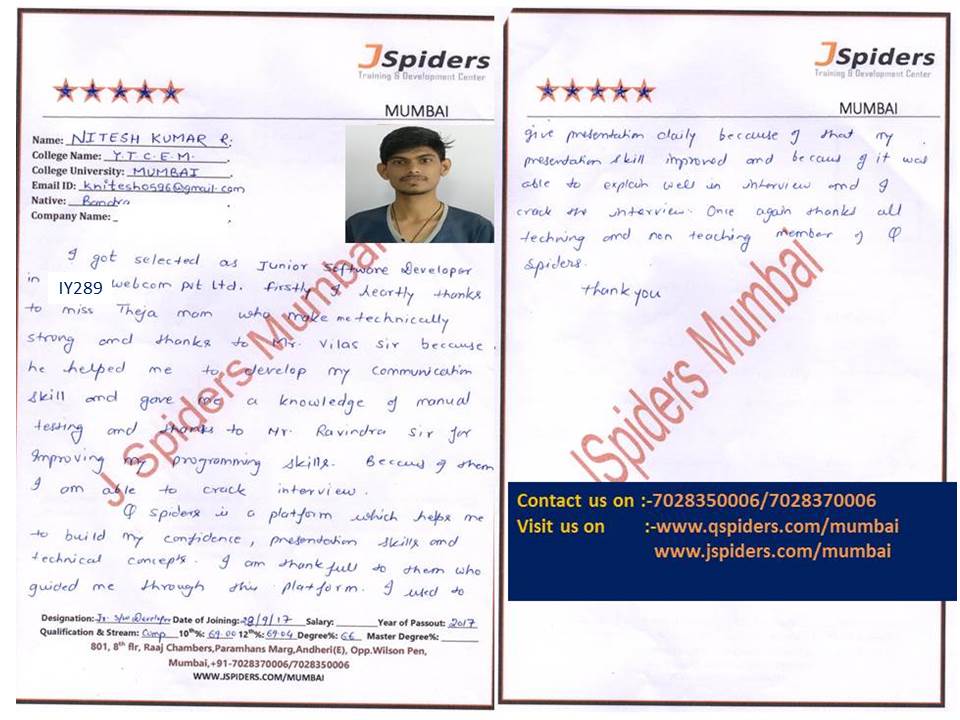 JSpiders
Training & Development Center
MUMBAI
Name: NITESH KUMAR R.
College Name: Y.T.C.E.M.
College University: MUMBAI
Email ID: knitesh0596@gmail.com
Native: Bandra
Company Name:
I got selected as Junior Software Developer
in IY289 webcom pvt Ltd. firstly I heartly thanks
to miss Theja mam who make me technically
strong and thanks to Mr. Vilas sir because
he helped me to develop my communication
skill and gave me a knowledge of manual
testing and thanks to Mr. Ravindra sir for
improving my programming skills. Becaus of them
I am able to crack interview.
Q spiders is a platform which helps me
to build my confidence, presentation skills and
technical concepts. I am thankfull to them who
guided me through this platform. I used to
Designation: Jr. S/w Developer Date of Joining: 28/9/17 Salary: Year of Passout: 2017
Qualification & Stream: Comp 10th%: 69.00 12th%: 69.04 Degree%: 66 Master Degree%:
801, 8th flr, Raaj Chambers,Paramhans Marg,Andheri(E), Opp.Wilson Pen,
Mumbai,+91-7028370006/7028350006
WWW.JSPIDERS.COM/MUMBAI
J Spiders Mumbai
JSpiders
Training & Development Center
MUMBAI
give presentation daily beccause of that my
presentation skill improved and becaus of it was
able to explain well in interview and I
crack the interview. Once again thanks all
techning and non teaching member of Q
spiders.
thank you
JSpiders Mumbai
Contact us on :-7028350006/7028370006
Visit us on :-www.qspiders.com/mumbai
www.jspiders.com/mumbai